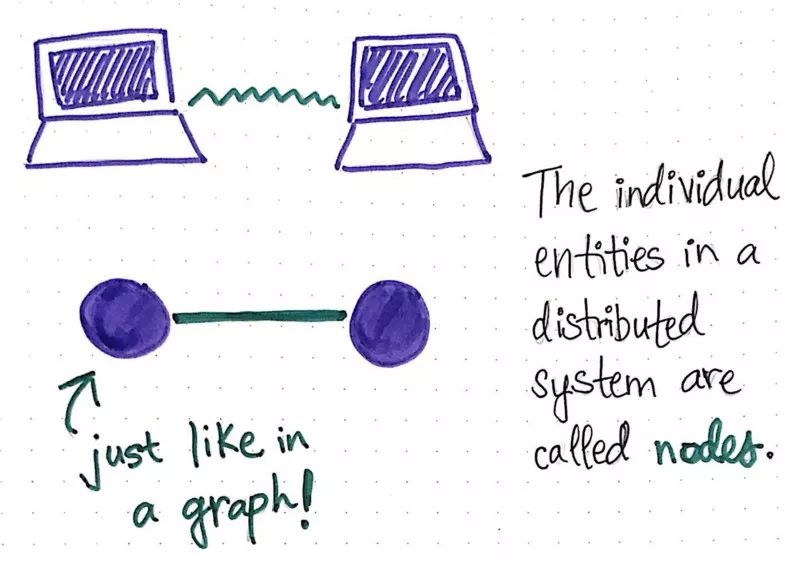 The individual
entities in a
distributed
system are
called nodes.
just like in
a graph!